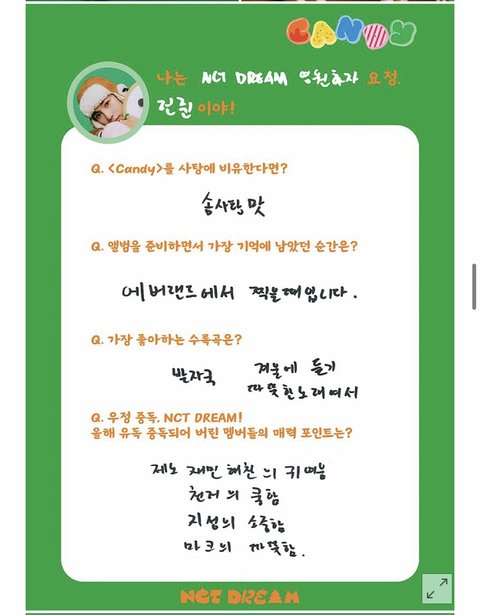 CANDY
나는 NCT DREAM 영원효자 요정,
런쥔 이야!
Q. <Candy>를 사탕에 비유한다면?
솜사탕 맛
Q. 앨범을 준비하면서 가장 기억에 남았던 순간은?
에버랜드에서 찍을때입니다.
Q. 가장 좋아하는 수록곡은?
발자국 겨울에 듣기
따뜻한노래여서
Q. 우정 중독, NCT DREAM!
올해 유독 중독되어 버린 멤버들의 매력 포인트는?
제노 재민 해찬의 귀여움
천러의 쿨함
지성의 소중함
마크의 따뜻함.
NCT DREAM